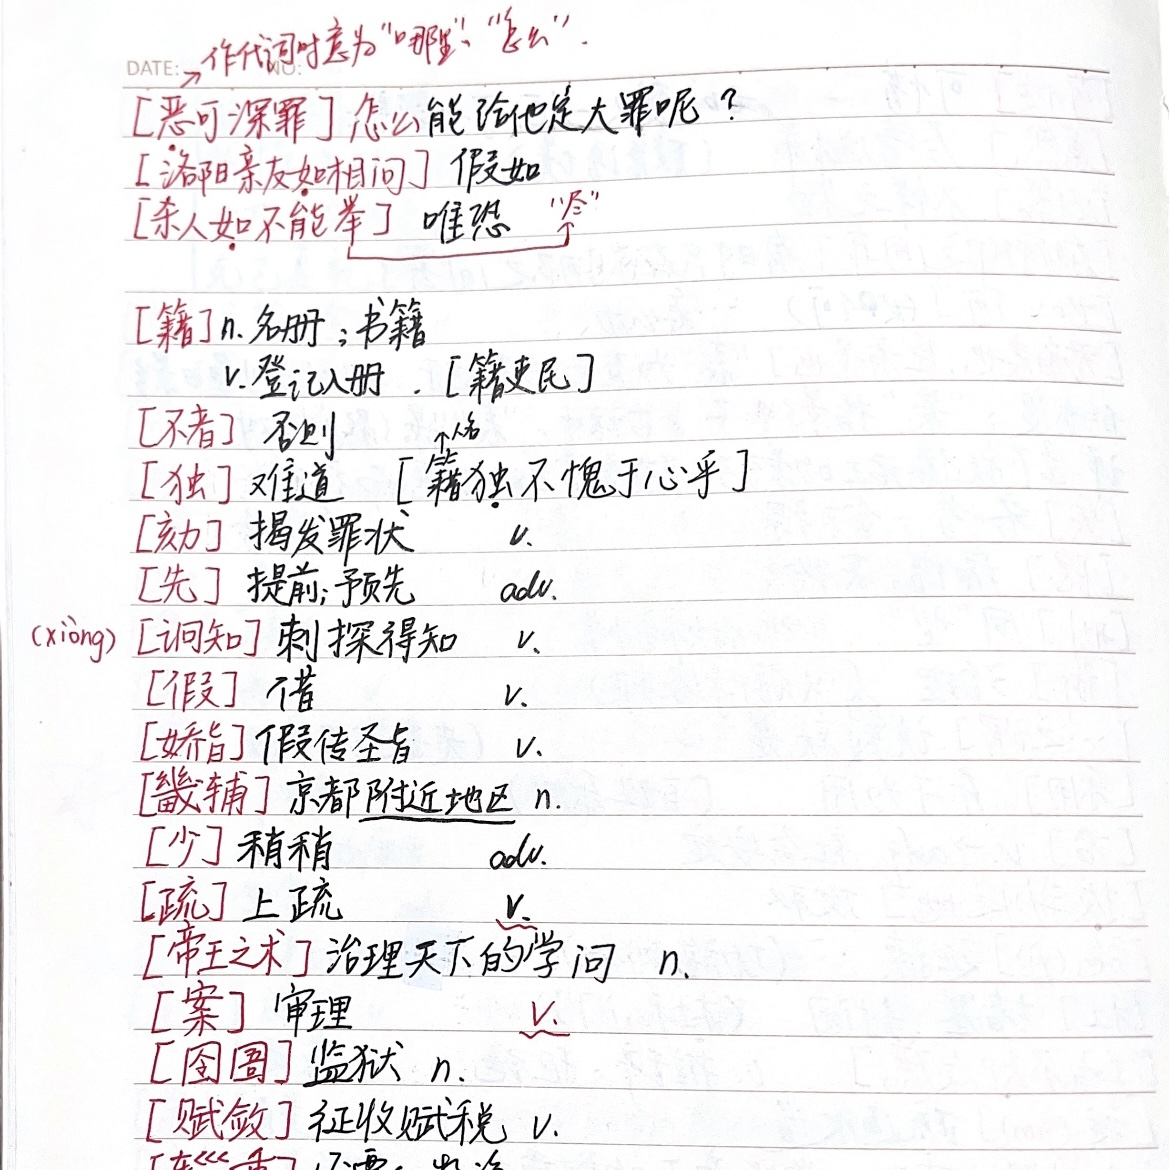 作代词时意为“哪里”、“怎么”.
DATE: NO:
[恶可深罪] 怎么能给他定大罪呢？
[洛阳亲友如相问] 假如
[杀人如不能举] 唯恐 “尽”
[籍] n. 名册；书籍
v. 登记入册 . [籍吏民]
[不者] 否则
人名
[独] 难道 [籍独不愧于心乎]
[劾] 揭发罪状 v.
[先] 提前；预先 adv.
(xiòng) [诇知] 刺探得知 v.
[假] 借 v.
[矫旨] 假传圣旨 v.
[畿辅] 京都附近地区 n.
[少] 稍稍 adv.
[疏] 上疏 v.
[帝王之术] 治理天下的学问 n.
[案] 审理 v.
[囹圄] 监狱 n.
[赋敛] 征收赋税 v.